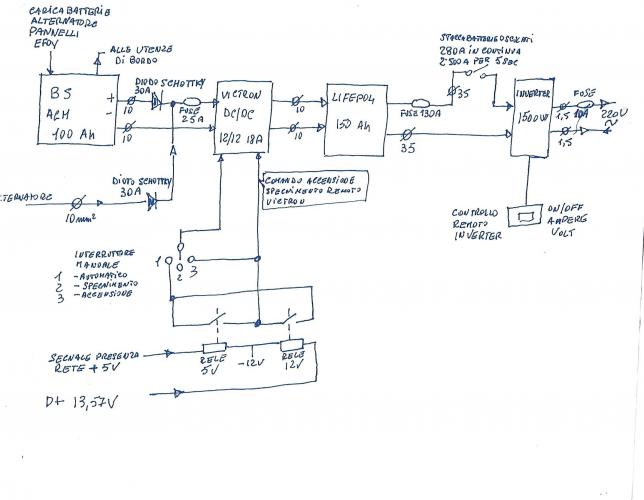 CARICABATTERIE
ALTERNATORE
PANNELLI
EFOY
ALLE UTENZE
DI BORDO
BS
AGM
100 Ah
+
-
10
10
DIODO SCHOTTKY
30A
FUSE
25A
VICTRON
DC/DC
12/12 18A
10
10
LIFEPO4
150 Ah
FUSE 130A
35
STACCABATTERIE OSCULATI
280A IN CONTINUA
2500A PER 5 SEC
35
INVERTER
1500W
1,5
1,5
FUSE
10A
220V
~
CONTROLLO
REMOTO
INVERTER
ON/OFF
AMPERE
VOLT
TERNATORE
10mm²
DIODO SCHOTTKY
30A
COMANDO ACCENSIONE
SPEGNIMENTO REMOTO
VICTRON
INTERRUTTORE
MANUALE
1 - AUTOMATICO
2 - SPEGNIMENTO
3 - ACCENSIONE
1
2
3
SEGNALE PRESENZA
RETE + 5V
RELE
5V
-12V
RELE
12V
D+ 13,57V